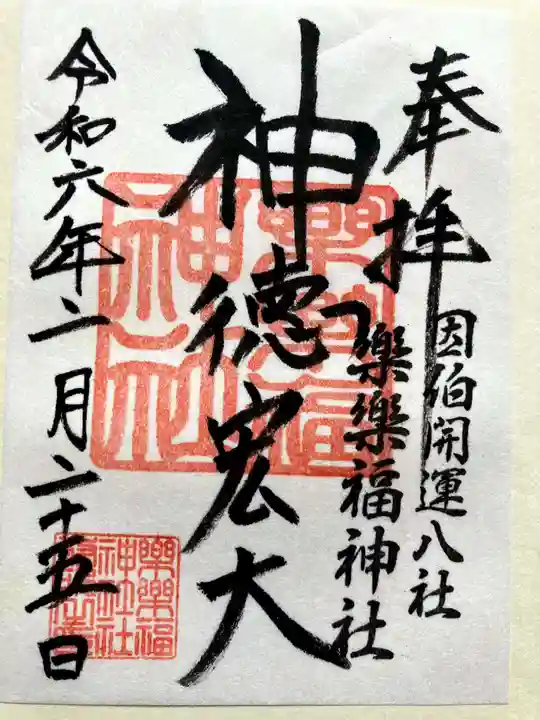 奉拝
因伯開運八社
樂樂福神社
神徳宏大
令和六年二月二十五日
樂樂福神社